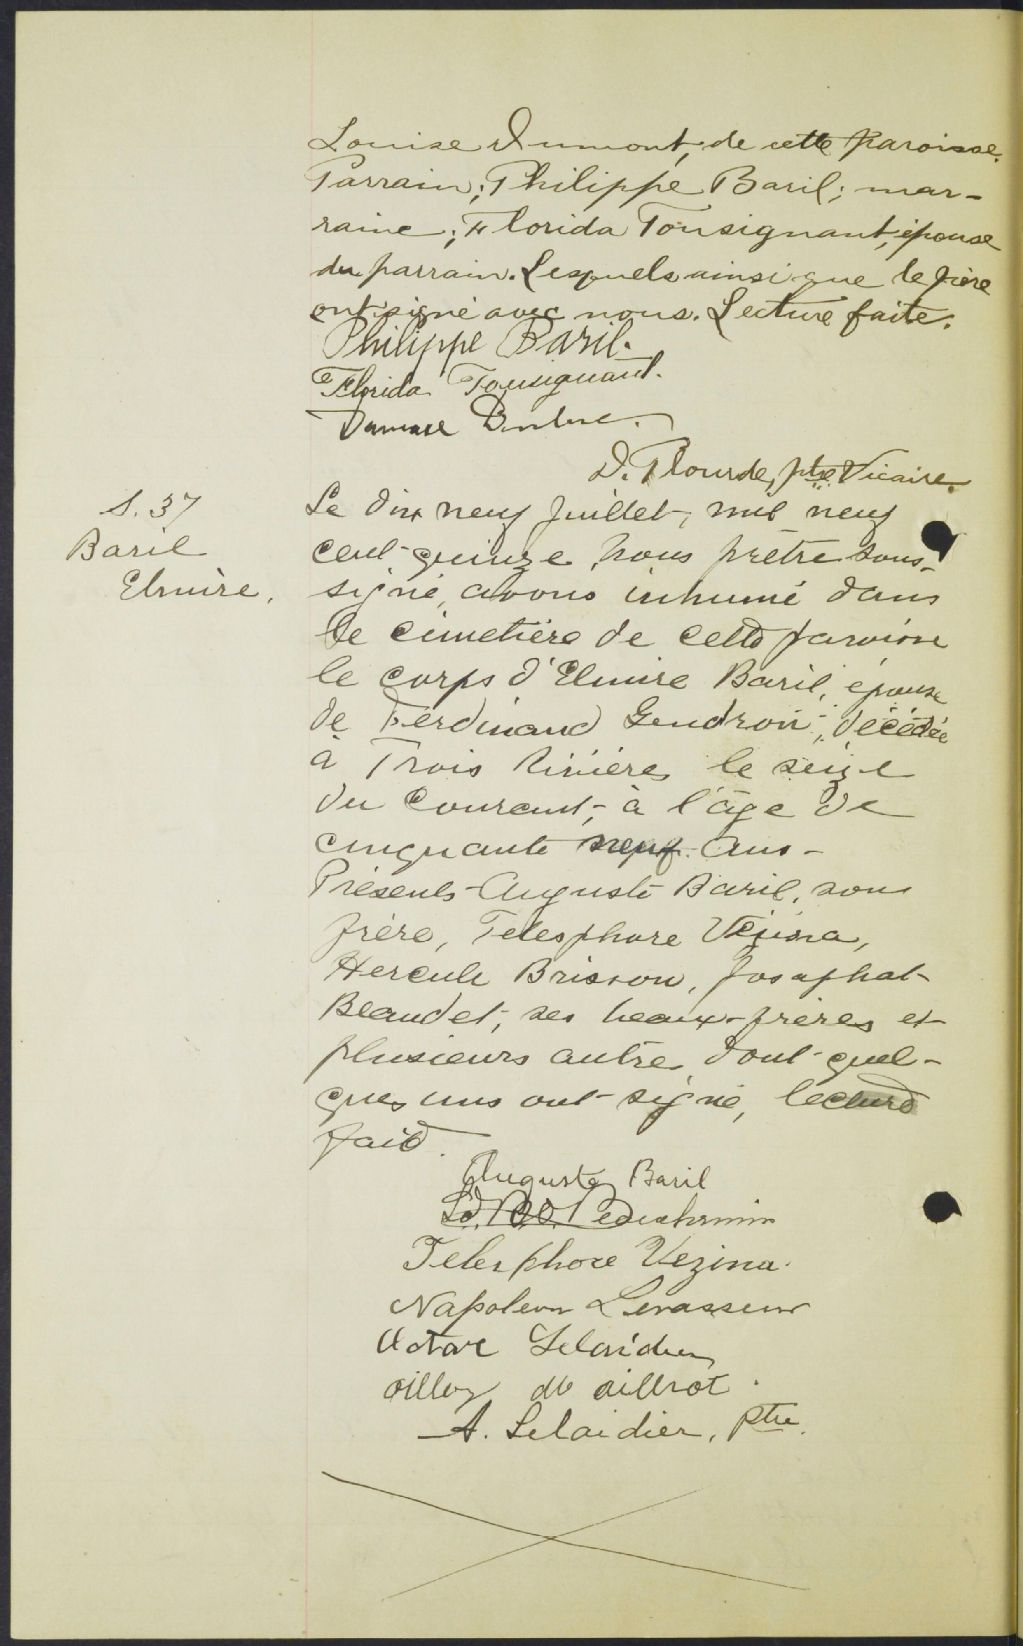 Louise Dumont, de cette paroisse.
Parrain; Philippe Baril; mar-
raine; Florida Tousignant, épouse
du parrain. Lesquels ainsi que le père
ont signé avec nous. Lecture faite.
Philippe Baril.
Florida Tousignant.
Damase
D. Plourde, ptre Vicaire.
S. 37
Baril
Elmire.
Le dix neuf Juillet, mil neuf
cent-quinze, nous prêtre sous-
signé, avons inhumé dans
le cimetière de cette paroisse
le corps d'Elmire Baril, épouse
de Ferdinand Gendron, décédée
à Trois Rivières le seize
du courant, à l'âge de
cinquante neuf ans-
Présents Auguste Baril, son
frère, Telesphore Vézina,
Hercule Brisson, Josaphat
Beaudet, ses beaux-frères et
plusieurs autre dont quel-
ques uns ont signé, lecture
fait.
Auguste Baril
Telesphore Vezina.
Napoleon Levasseur
A. Lelaidier, Ptre.